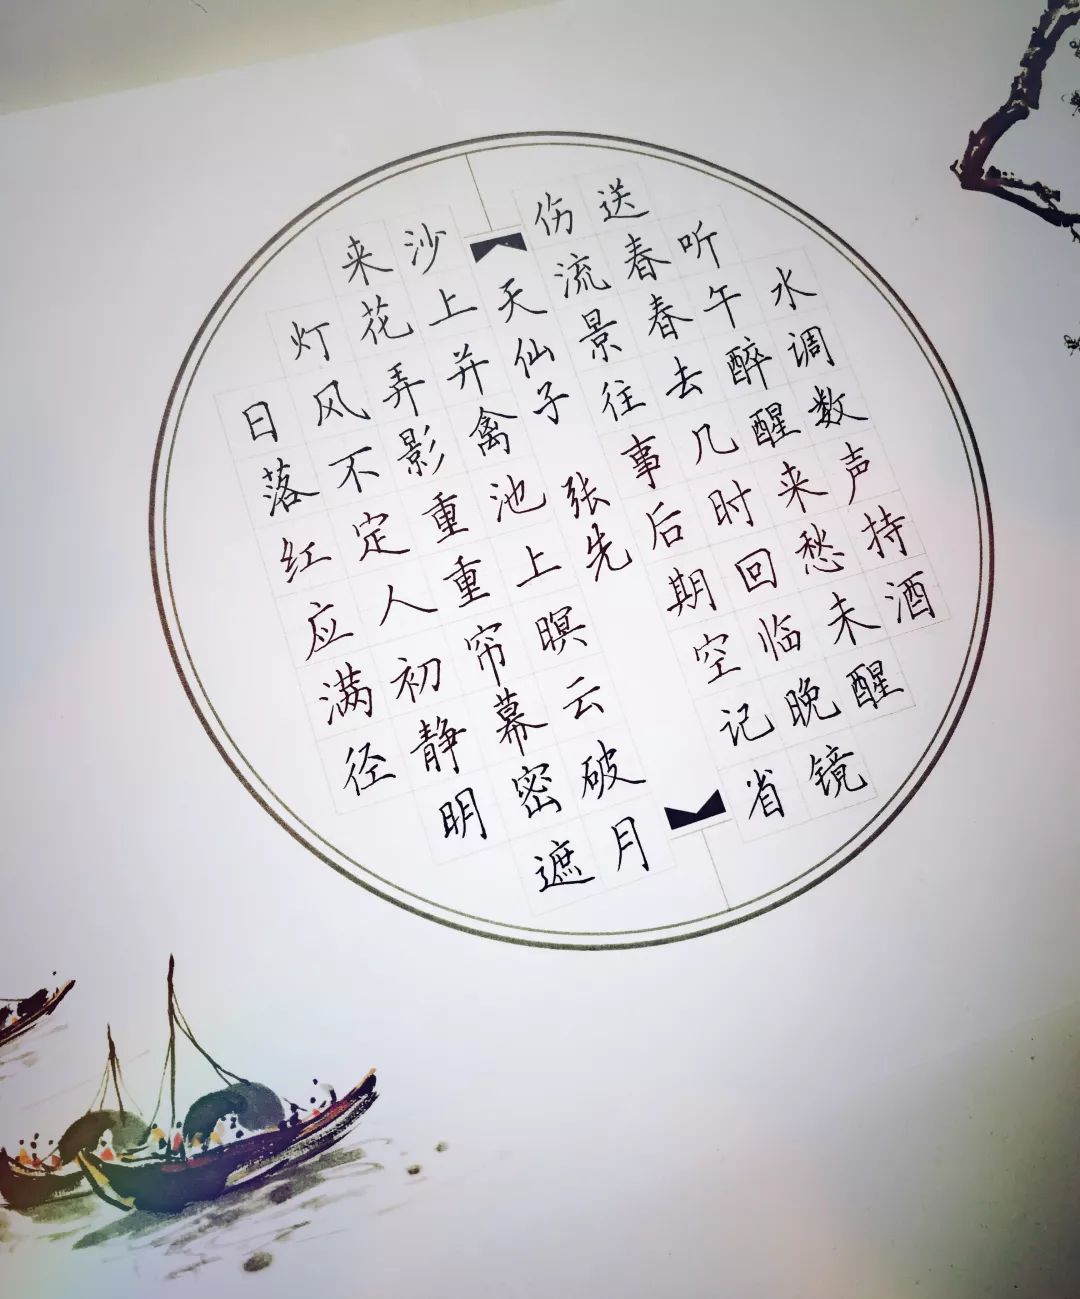 水调数声持酒
听午醉醒来愁未醒
送春春去几时回临晚镜
伤流景往事后期空记省
天仙子 张先
沙上并禽池上暝云破月
来花弄影重重帘幕密遮
灯风不定人初静明
日落红应满径